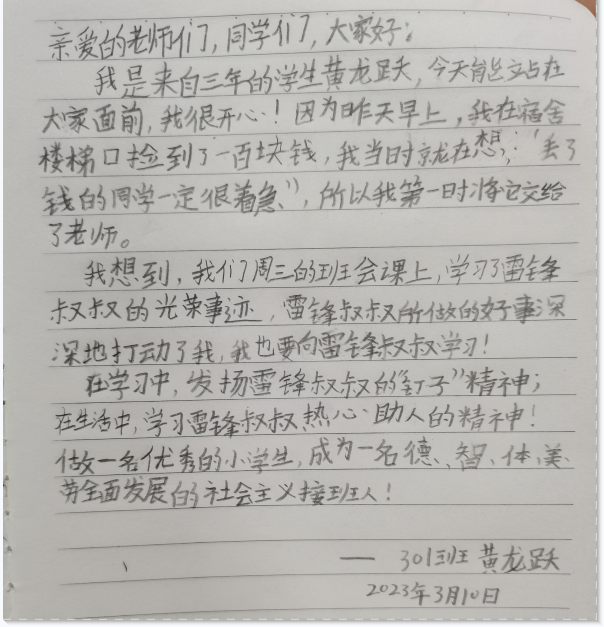 亲爱的老师们，同学们，大家好：
我是来自三年的学生黄龙跃，今天能站在
大家面前，我很开心！因为昨天早上，我在宿舍
楼梯口捡到了一百块钱，我当时就在想：“丢了
钱的同学一定很着急”，所以我第一时将它交给
了老师。
我想到，我们周三的班会课上，学习了雷锋
叔叔的光荣事迹，雷锋叔叔所做的好事深
深地打动了我，我也要向雷锋叔叔学习！
在学习中，发扬雷锋叔叔的“钉子”精神；
在生活中，学习雷锋叔叔热心助人的精神！
做一名优秀的小学生，成为一名德、智、体、美、
劳全面发展的社会主义接班人！
—— 301班 黄龙跃
2023年3月10日